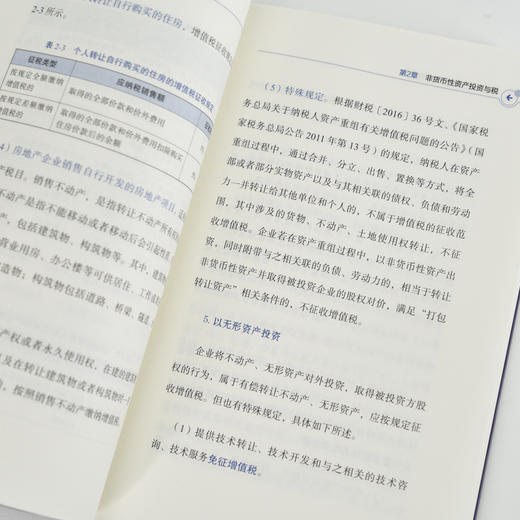 转让自行购买的住房，增值税征收规
2-3所示。
表2-3 个人转让自行购买的住房的增值税征收规定
征税类型
应纳税销售额
按规定全额缴纳
增值税的
取得的全部价款和价外费用
按规定差额缴纳
增值税的
取得的全部价款和价外费用扣除购买
住房价款后的余额
4）房地产企业销售自行开发的房地产项目，
税目。销售不动产，是指转让不动产所有
不动产是指不能移动或者移动后会引起性质
，包括建筑物、构筑物等。其中，建筑物
营业用房、办公楼等可供居住、工作
造物；构筑物包括道路、桥梁、隧道、
产权或者永久使用权，在建的
以及在转让建筑物或者构筑物时一
，按照销售不动产缴纳增值税
第2章 非货币性资产投资与税
（5）特殊规定。根据财税［2016］36号文、《国家税
务总局关于纳税人资产重组有关增值税问题的公告》（国
家税务总局公告2011年第13号）的规定，纳税人在资产
重组过程中，通过合并、分立、出售、置换等方式，将全
部或者部分实物资产以及与其相关联的债权、负债和劳动
力一并转让给其他单位和个人的，不属于增值税的征收范
围，其中涉及的货物、不动产、土地使用权转让，不征
收增值税。企业若在资产重组过程中，以非货币性资产出
资，同时附带与之相关联的负债、劳动力的，相当于转让
非货币性资产并取得被投资企业的股权对价，满足“打包
转让资产”相关条件的，不征收增值税。
5. 以无形资产投资
企业将不动产、无形资产对外投资，取得被投资方股
权的行为，属于有偿转让不动产、无形资产，应按规定征
收增值税。但也有特殊规定，具体如下所述。
（1）提供技术转让、技术开发和与之相关的技术咨
询、技术服务免征增值税。